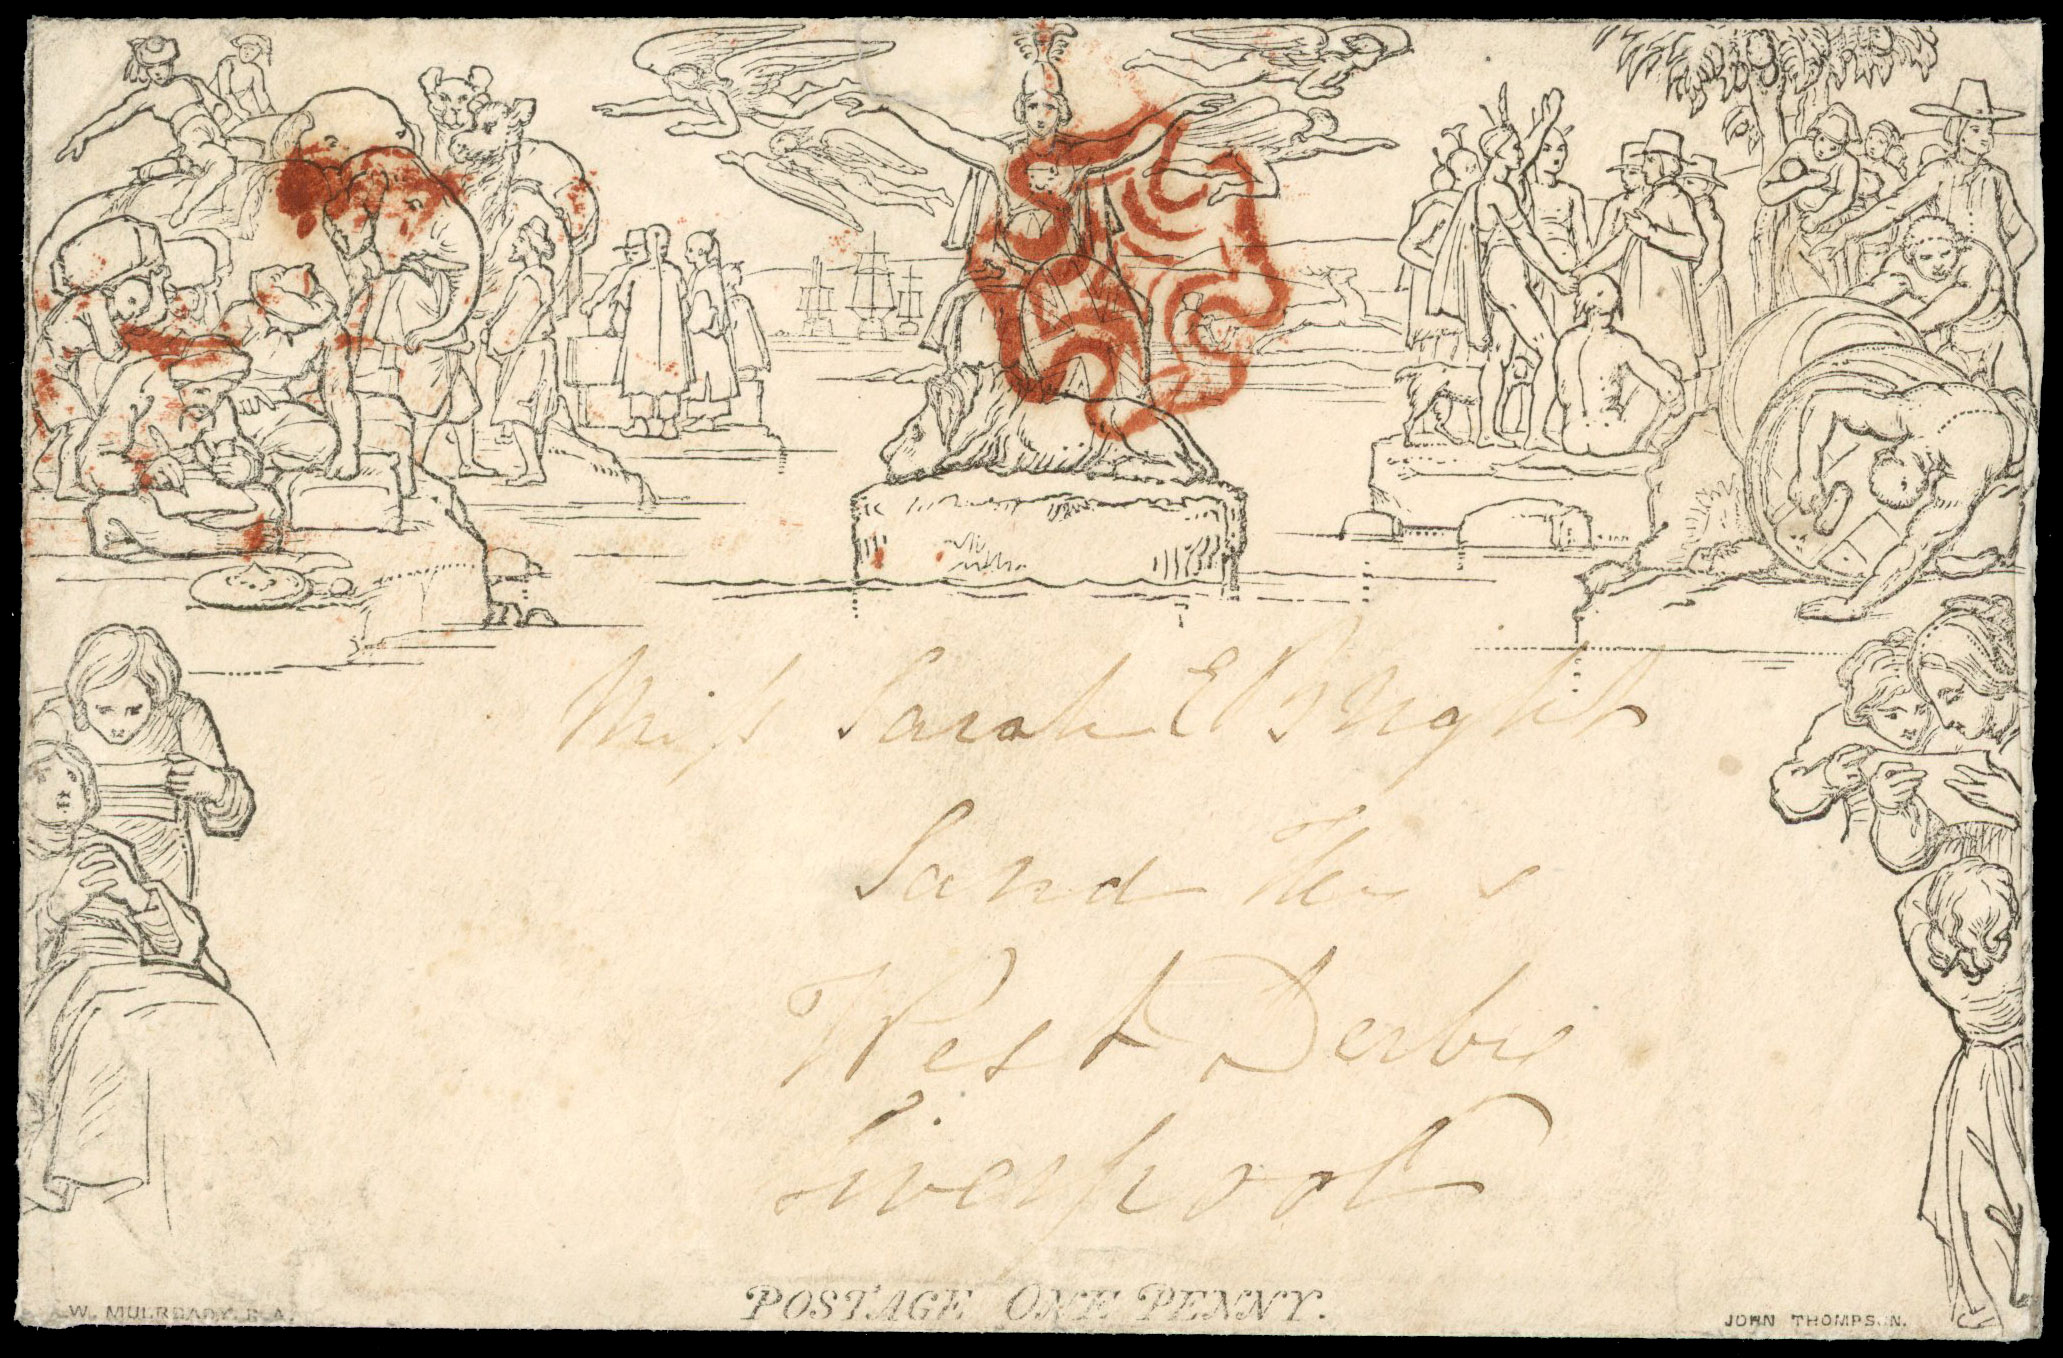 Miss Sarah E Bright
Sand
West Derby
Liverpool
POSTAGE ONE PENNY.
W. MULREADY. R. A.
JOHN THOMPSON.